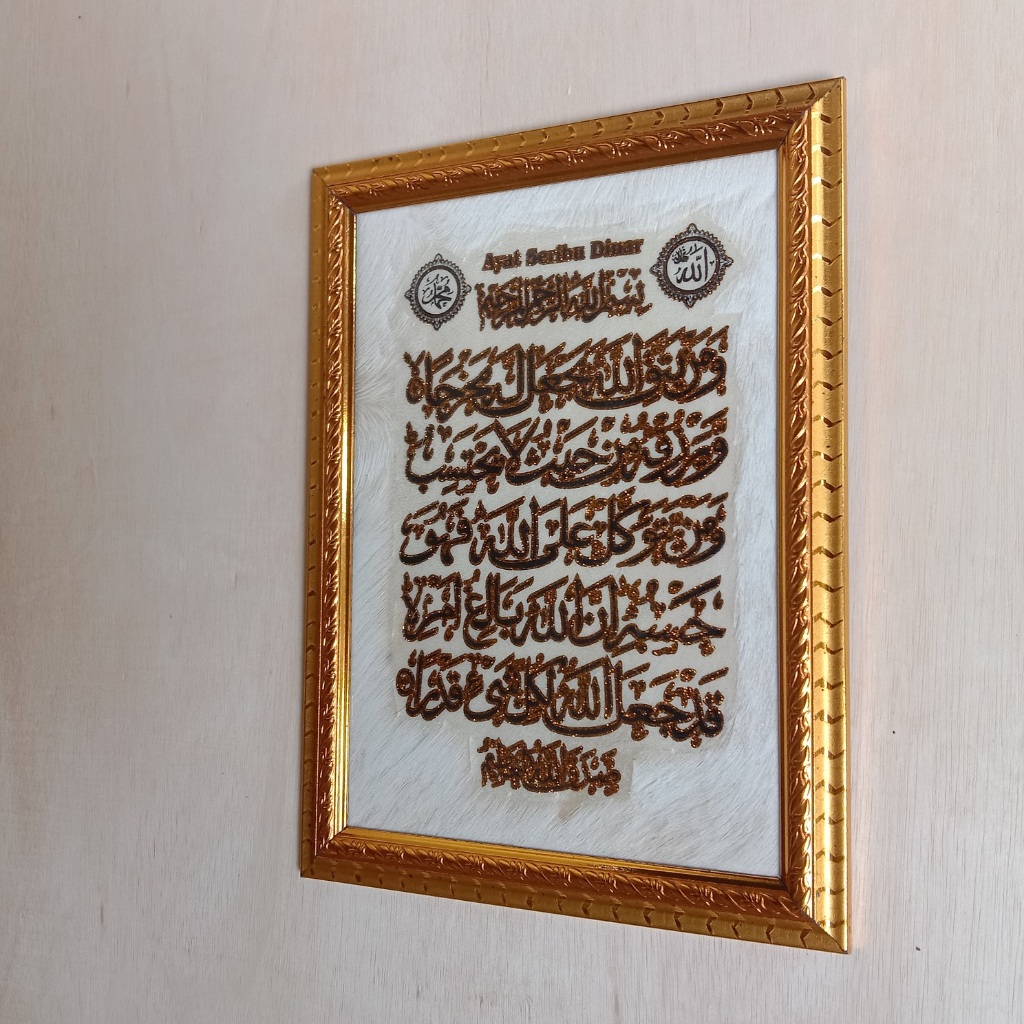 Ayat Seribu Dinar
محمد
الله
بسم الله الرحمن الرحيم
ومن يتق الله يجعل له مخرجاه
ويرزقه من حيث لا يحتسب
ومن يتوكل على الله فهو
حسبه ان الله بالغ امره
قد جعل الله لكل شيء قدراه
صدق الله العظيم